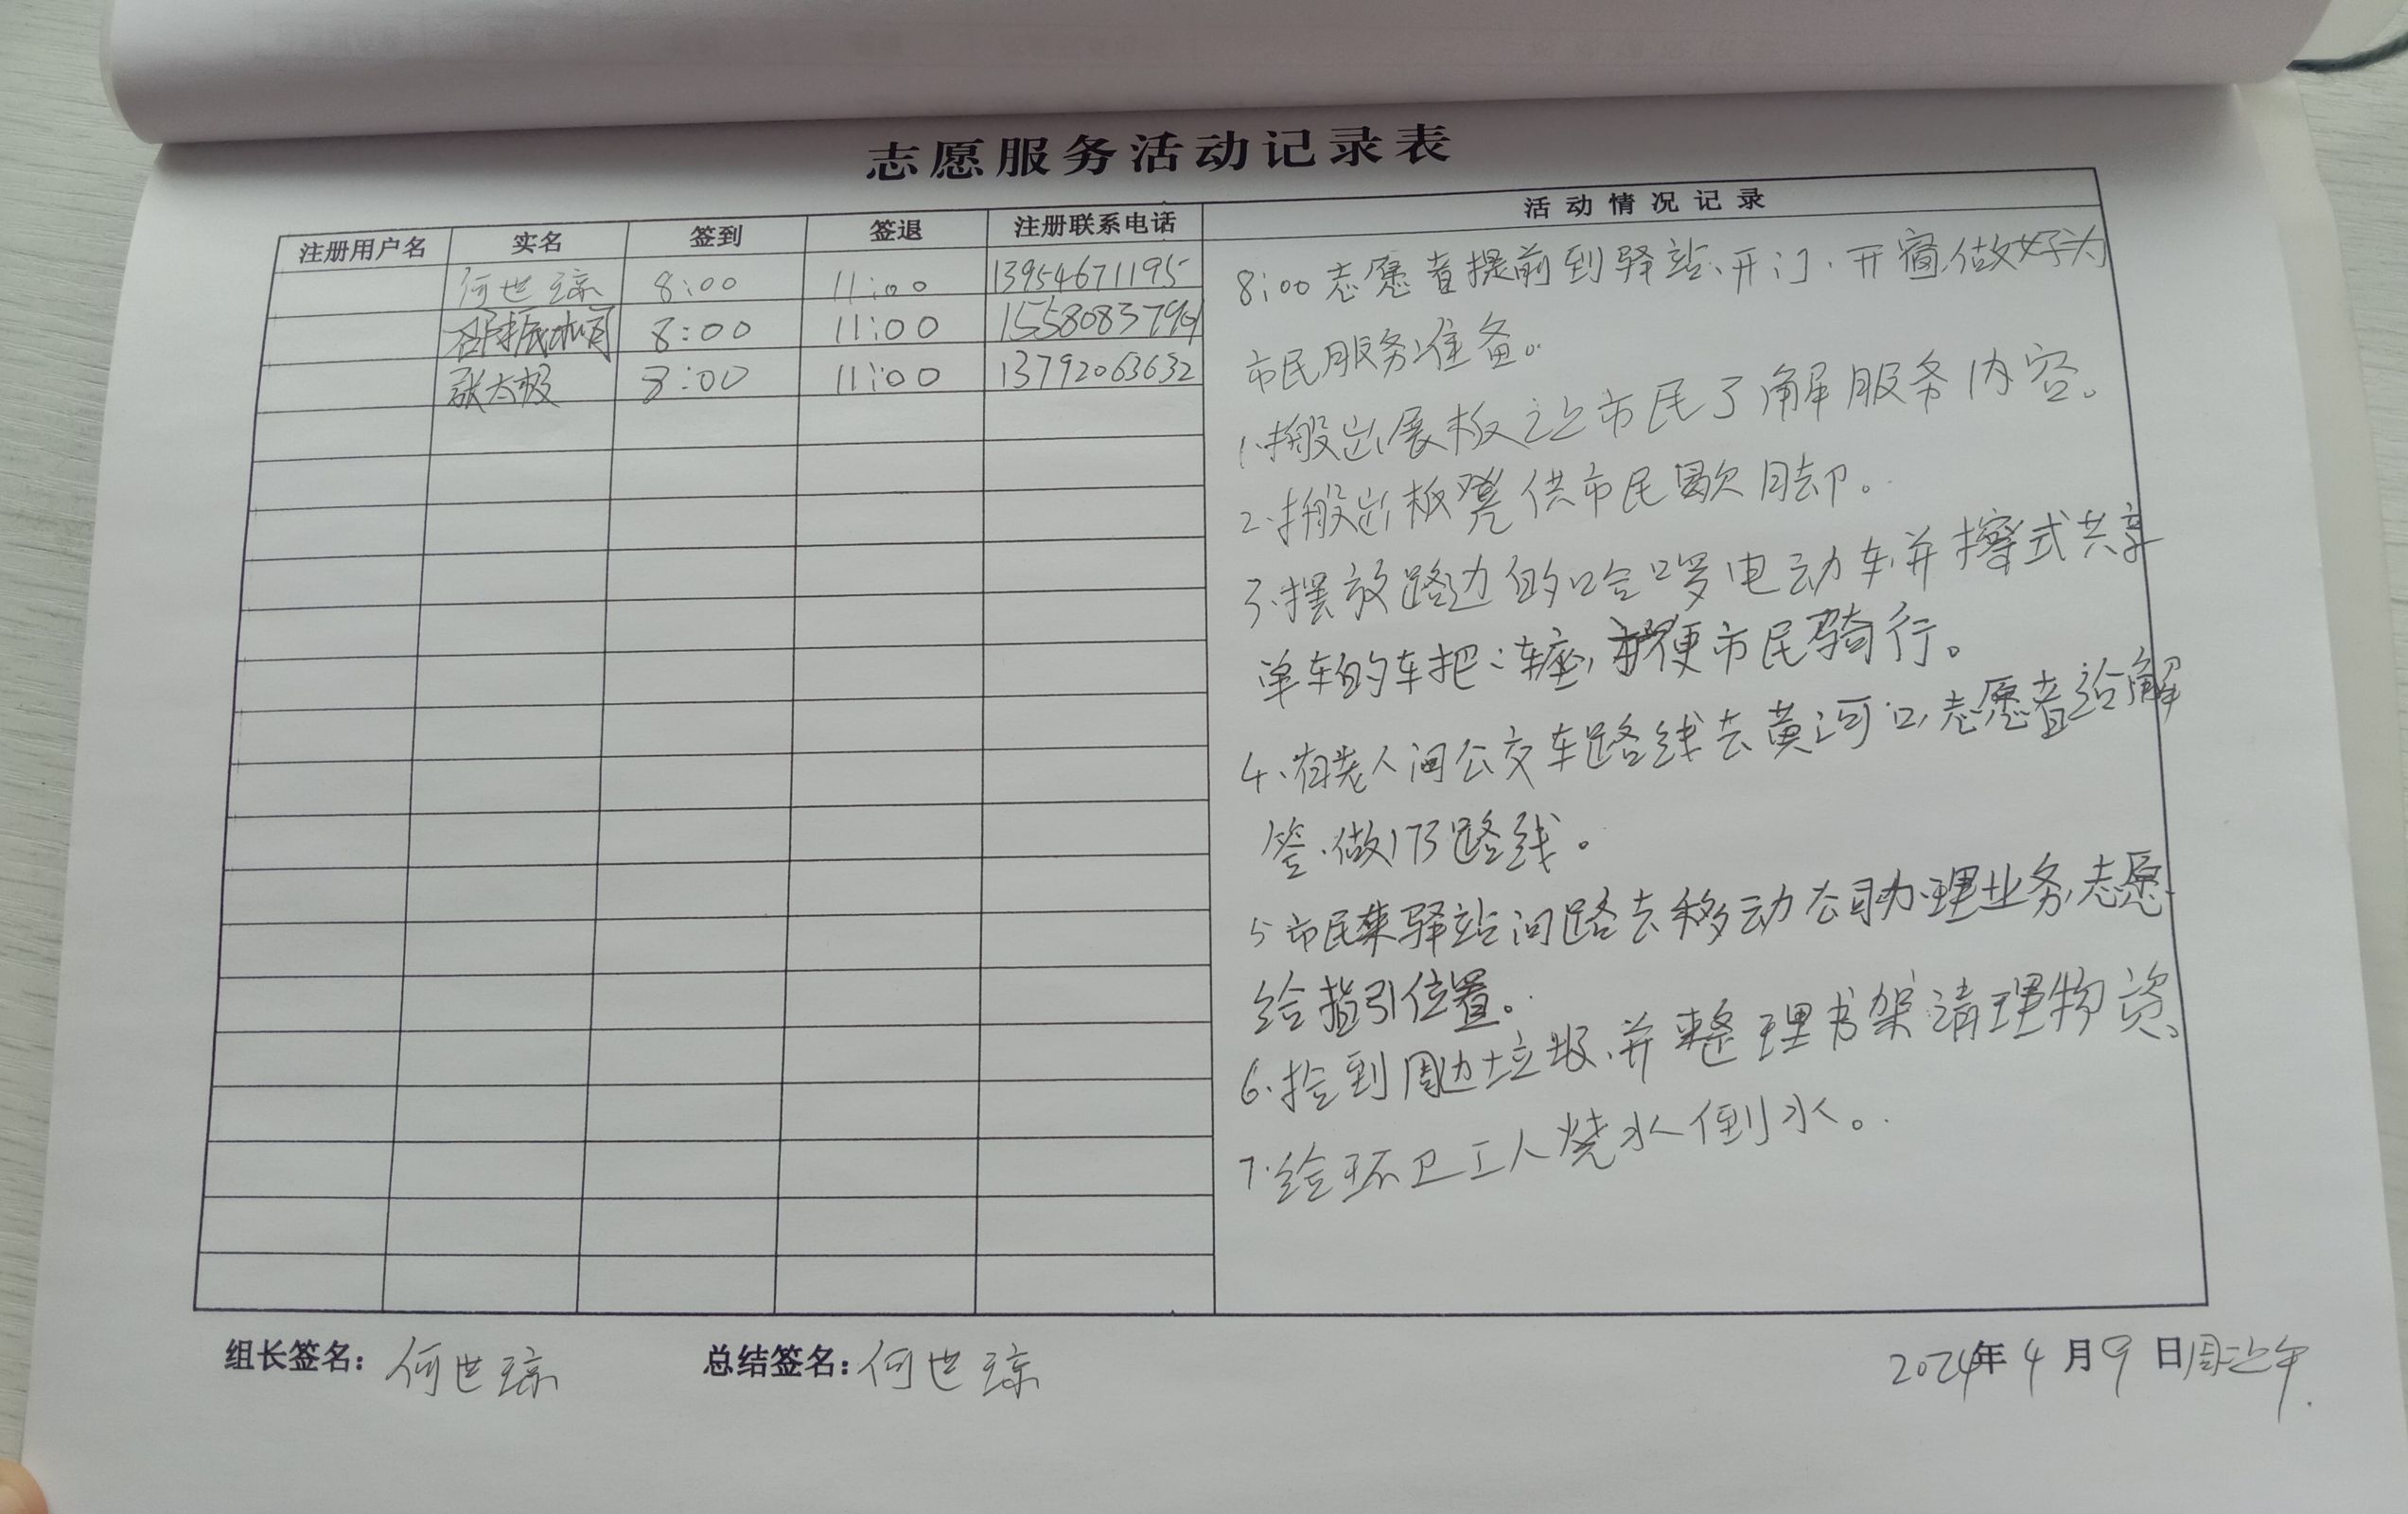 志愿服务活动记录表
注册用户名 实名 签到 签退 注册联系电话 活动情况记录
何世琼 8:00 11:00 13954671195
8:00 11:00
张太极 8:00 11:00 13792063632
8:00 志愿者提前到驿站、开门、开窗、做好为
市民服务准备。
1.搬出展板让市民了解服务内容。
2.搬出板凳供市民歇脚。
3、摆放路边的哈啰电动车,并擦式共享
单车的车把、车座,方便市民骑行。
4、有老人问公交车路线去黄河口,志愿者给解
答.做173路线。
5 市民来驿站问路去移动公司办理业务,志愿
给指引位置。
6.捡到周边垃圾、并整理书架清理物资、
7.给环卫工人烧水倒水。
组长签名: 何世琼 总结签名: 何世琼 2024年4月9日周二上午